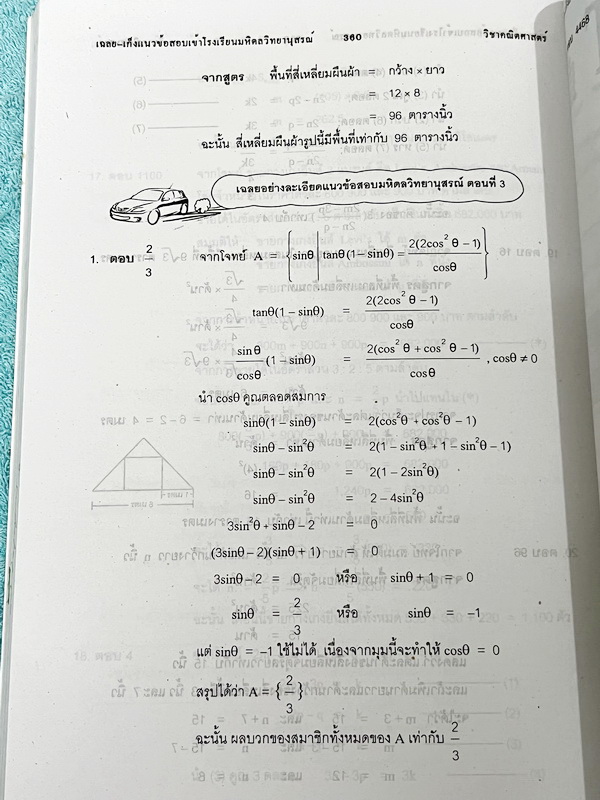 เฉลย-เก็งแนวข้อสอบเข้าโรงเรียนมหิดลวิทยานุสรณ์ 360 วิชาคณิตศาสตร์
จากสูตร พื้นที่สี่เหลี่ยมผืนผ้า = กว้าง × ยาว
= 12 × 8
= 96 ตารางนิ้ว
ฉะนั้น สี่เหลี่ยมผืนผ้ารูปนี้มีพื้นที่เท่ากับ 96 ตารางนิ้ว
เฉลยอย่างละเอียดแนวข้อสอบมหิดลวิทยานุสรณ์ ตอนที่ 3
1. ตอบ 2/3 จากโจทย์ A = {sinθ | tanθ(1-sinθ) = 2(2cos²θ-1)/cosθ}
tanθ(1-sinθ) = 2(2cos²θ-1)/cosθ
sinθ/cosθ (1-sinθ) = 2(cos²θ+cos²θ-1)/cosθ , cosθ ≠ 0
นำ cosθ คูณตลอดสมการ
sinθ(1-sinθ) = 2(cos²θ+cos²θ-1)
sinθ-sin²θ = 2(1-sin²θ+1-sin²θ-1)
sinθ-sin²θ = 2(1-2sin²θ)
sinθ-sin²θ = 2-4sin²θ
3sin²θ+sinθ-2 = 0
(3sinθ-2)(sinθ+1) = 0
3sinθ-2 = 0 หรือ sinθ+1 = 0
sinθ = 2/3 หรือ sinθ = -1
แต่ sinθ = -1 ใช้ไม่ได้ เนื่องจากมุมนี้จะทำให้ cosθ = 0
สรุปได้ว่า A = {2/3}
ฉะนั้น ผลบวกของสมาชิกทั้งหมดของ A เท่ากับ 2/3